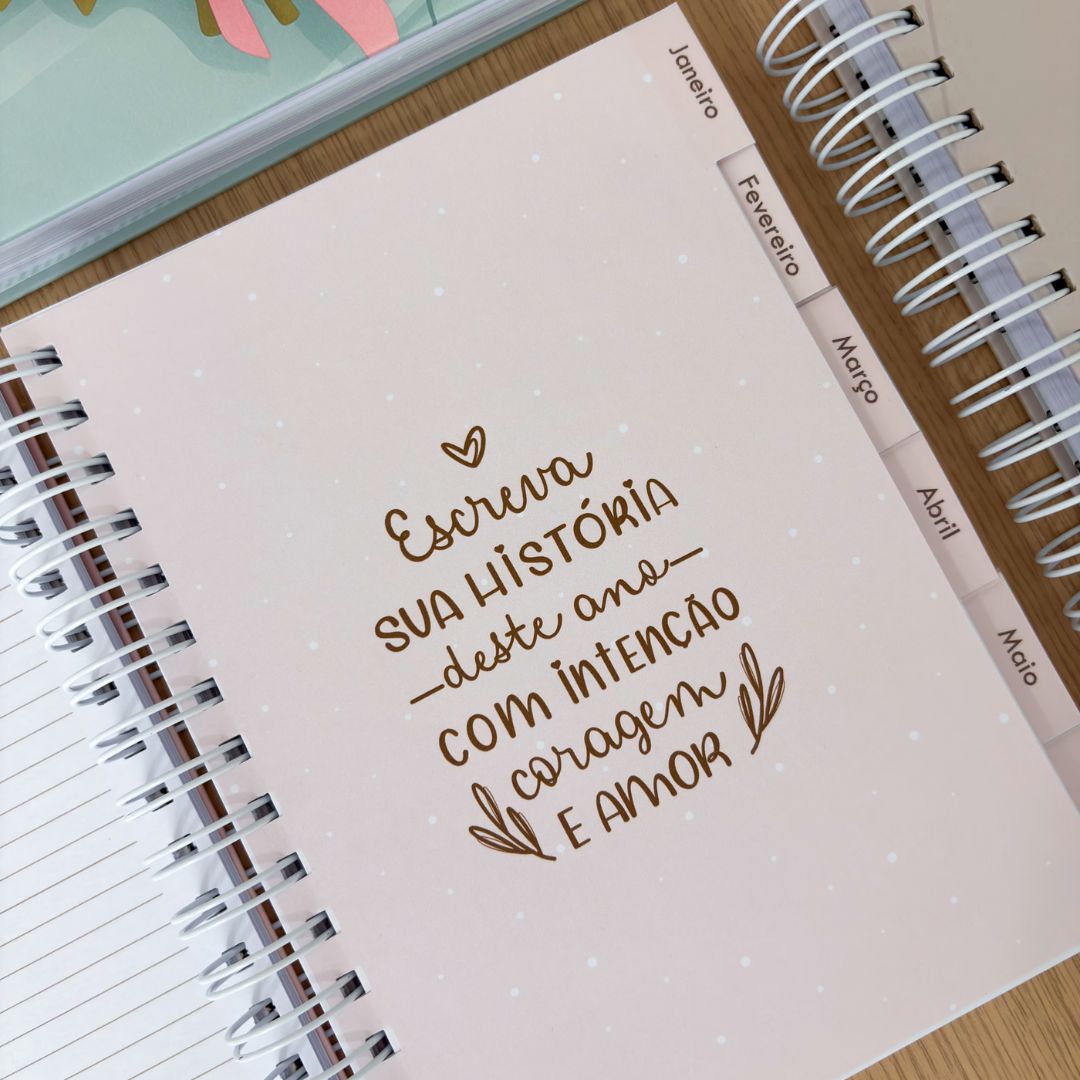 Escreva
SUA HISTÓRIA
deste ano
COM INTENÇÃO
coragem
E AMOR
Janeiro
Fevereiro
Março
Abril
Maio